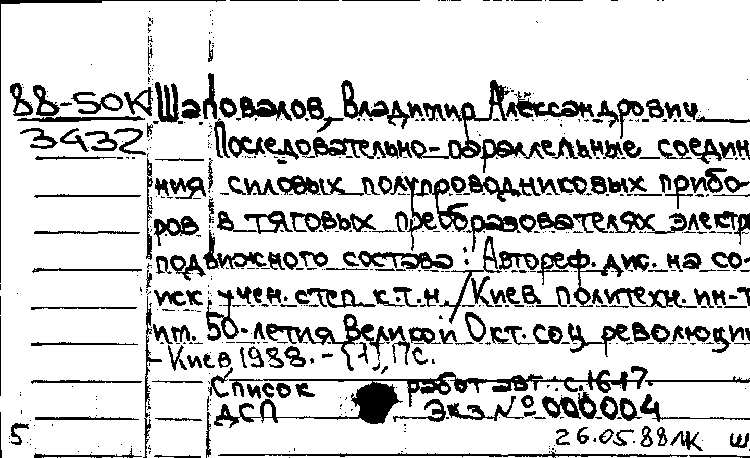 88-50К Шаповалов, Владимир Александрович
3432 Последовательно-параллельные соедин
ния силовых полупроводниковых прибо-
ров в тяговых преобразователях электр
подвижного состава : Автореф. дис. на со-
иск. учен. степ. к.т.н. / Киев. политехн. ин-т
им. 50-летия Великой Окт. соц. революции
- Киев, 1988. - [1], 17 с.
Список работ авт.: с. 16-17.
ДСП Экз. № 000004
5 26.05.88 ЛК ш